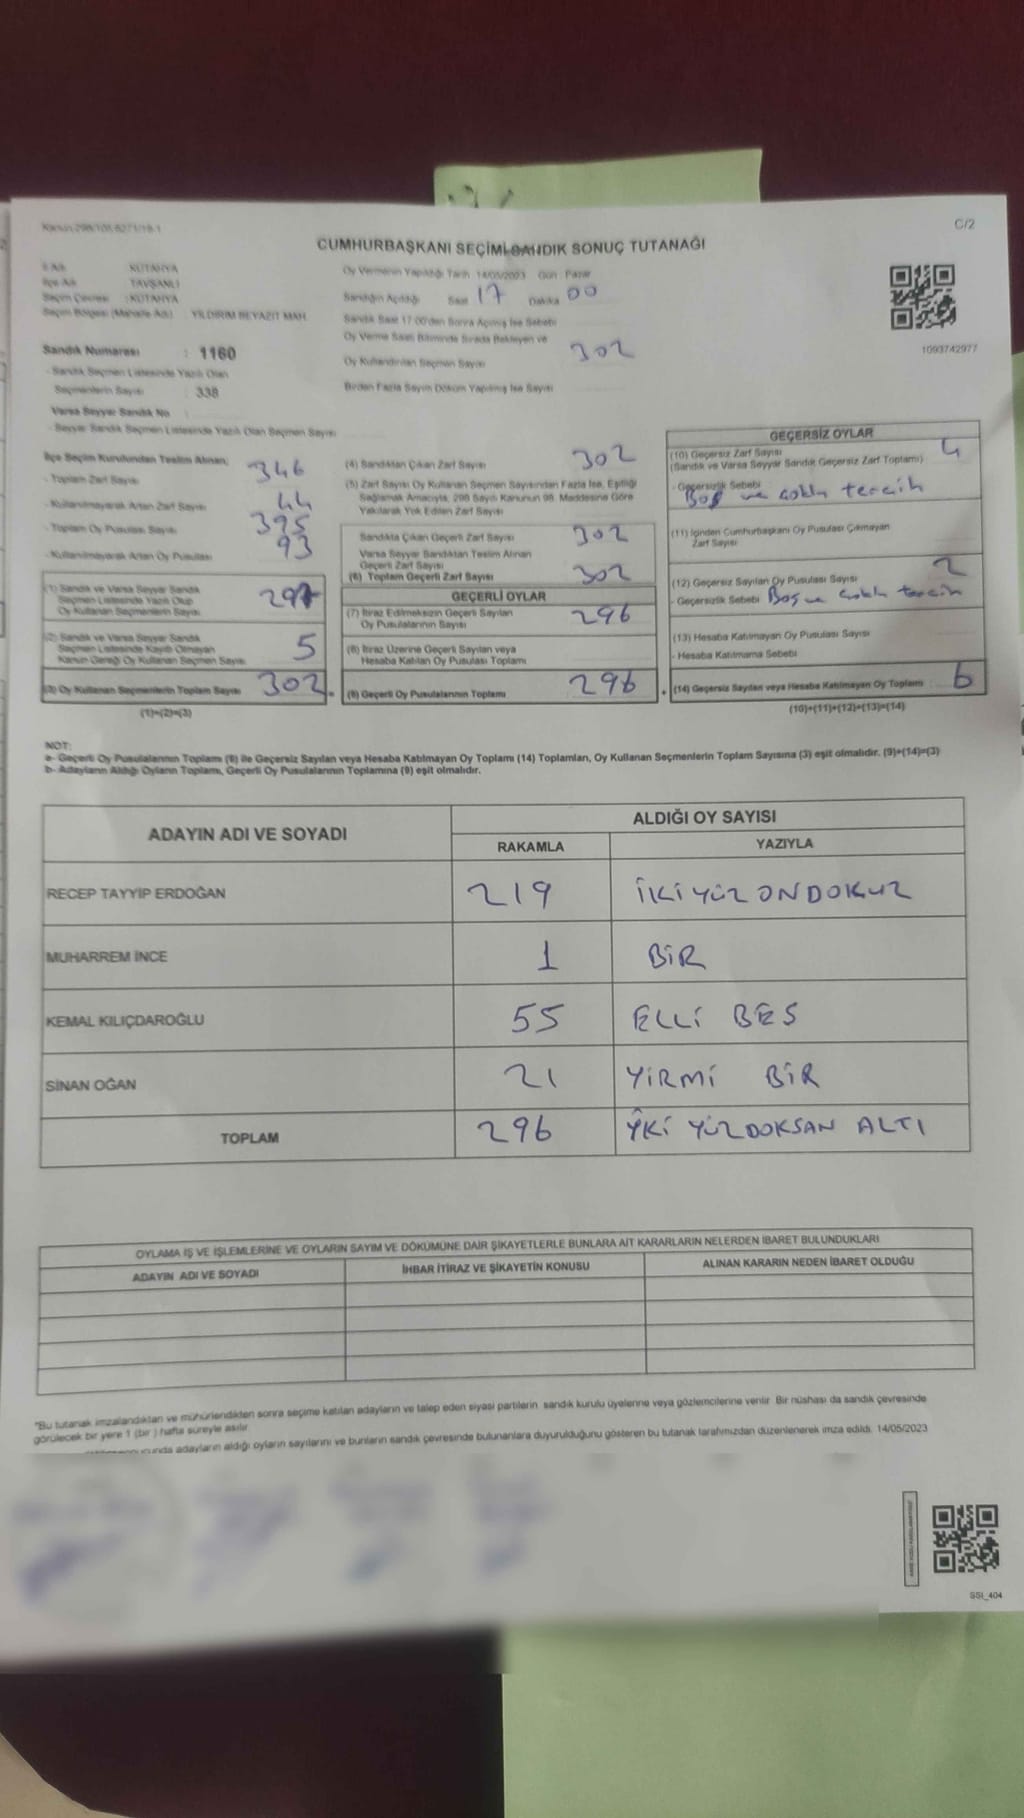 Kanun:298/105,6271/19-1
C/2
CUMHURBAŞKANI SEÇİMİ SANDIK SONUÇ TUTANAĞI
İl Adı : KÜTAHYA
İlçe Adı : TAVŞANLI
Seçim Çevresi : KÜTAHYA
Seçim Bölgesi (Mahalle Adı) : YILDIRIM BEYAZIT MAH.
Sandık Numarası : 1160
- Sandık Seçmen Listesinde Yazılı Olan
Seçmenlerin Sayısı : 338
Varsa Seyyar Sandık No :
- Seyyar Sandık Seçmen Listesinde Yazılı Olan Seçmen Sayısı
Oy Vermenin Yapıldığı Tarih 14/05/2023 Gün : Pazar
Sandığın Açıldığı Saat 17 Dakika 00
Sandık Saat 17.00'den Sonra Açılmış İse Sebebi
Oy Verme Saati Bitiminde Sırada Bekleyen ve
Oy Kullandırılan Seçmen Sayısı 302
Birden Fazla Sayım Döküm Yapılmış İse Sayısı
1093742977
İlçe Seçim Kurulundan Teslim Alınan;
- Toplam Zarf Sayısı 346
- Kullanılmayarak Artan Zarf Sayısı 44
- Toplam Oy Pusulası Sayısı 395
- Kullanılmayarak Artan Oy Pusulası 93
(1) Sandık ve Varsa Seyyar Sandık
Seçmen Listesinde Yazılı Olup
Oy Kullanan Seçmenlerin Sayısı 297
(2) Sandık ve Varsa Seyyar Sandık
Seçmen Listesinde Kayıtlı Olmayan
Kanun Gereği Oy Kullanan Seçmen Sayısı 5
(3) Oy Kullanan Seçmenlerin Toplam Sayısı 302
(1)+(2)=(3)
(4) Sandıktan Çıkan Zarf Sayısı 302
(5) Zarf Sayısı Oy Kullanan Seçmen Sayısından Fazla İse, Eşitliği
Sağlamak Amacıyla, 298 Sayılı Kanunun 98. Maddesine Göre
Yakılarak Yok Edilen Zarf Sayısı
Sandıkta Çıkan Geçerli Zarf Sayısı 302
Varsa Seyyar Sandıktan Teslim Alınan
Geçerli Zarf Sayısı
(6) Toplam Geçerli Zarf Sayısı 302
GEÇERLİ OYLAR
(7) İtiraz Edilmeksizin Geçerli Sayılan
Oy Pusulalarının Sayısı 296
(8) İtiraz Üzerine Geçerli Sayılan veya
Hesaba Katılan Oy Pusulası Toplamı
(9) Geçerli Oy Pusulalarının Toplamı 296
GEÇERSİZ OYLAR
(10) Geçersiz Zarf Sayısı 4
(Sandık ve Varsa Seyyar Sandık Geçersiz Zarf Toplamı)
- Geçersizlik Sebebi
Boş ve çoklu tercih
(11) İçinden Cumhurbaşkanı Oy Pusulası Çıkmayan
Zarf Sayısı
(12) Geçersiz Sayılan Oy Pusulası Sayısı 2
- Geçersizlik Sebebi Boş ve çoklu tercih
(13) Hesaba Katılmayan Oy Pusulası Sayısı
- Hesaba Katılmama Sebebi
(14) Geçersiz Sayılan veya Hesaba Katılmayan Oy Toplamı 6
(10)+(11)+(12)+(13)=(14)
NOT:
a- Geçerli Oy Pusulalarının Toplamı (9) ile Geçersiz Sayılan veya Hesaba Katılmayan Oy Toplamı (14) Toplamları, Oy Kullanan Seçmenlerin Toplam Sayısına (3) eşit olmalıdır. (9)+(14)=(3)
b- Adayların Aldığı Oyların Toplamı, Geçerli Oy Pusulalarının Toplamına (9) eşit olmalıdır.
ADAYIN ADI VE SOYADI
ALDIĞI OY SAYISI
RAKAMLA YAZIYLA
RECEP TAYYİP ERDOĞAN 219 İKİ YÜZ ONDOKUZ
MUHARREM İNCE 1 BİR
KEMAL KILIÇDAROĞLU 55 ELLİ BEŞ
SİNAN OĞAN 21 YİRMİ BİR
TOPLAM 296 İKİ YÜZ DOKSAN ALTI
OYLAMA İŞ VE İŞLEMLERİNE VE OYLARIN SAYIM VE DÖKÜMÜNE DAİR ŞİKAYETLERLE BUNLARA AİT KARARLARIN NELERDEN İBARET BULUNDUKLARI
ADAYIN ADI VE SOYADI İHBAR İTİRAZ VE ŞİKAYETİN KONUSU ALINAN KARARIN NEDEN İBARET OLDUĞU
"Bu tutanak imzalandıktan ve mühürlendikten sonra seçime katılan adayların ve talep eden siyasi partilerin sandık kurulu üyelerine veya gözlemcilerine verilir. Bir nüshası da sandık çevresinde
görülecek bir yere 1 (bir ) hafta süreyle asılır.
adayların aldığı oyların sayılarını ve bunların sandık çevresinde bulunanlara duyurulduğunu gösteren bu tutanak tarafımızdan düzenlenerek imza edildi. 14/05/2023
SSI_404